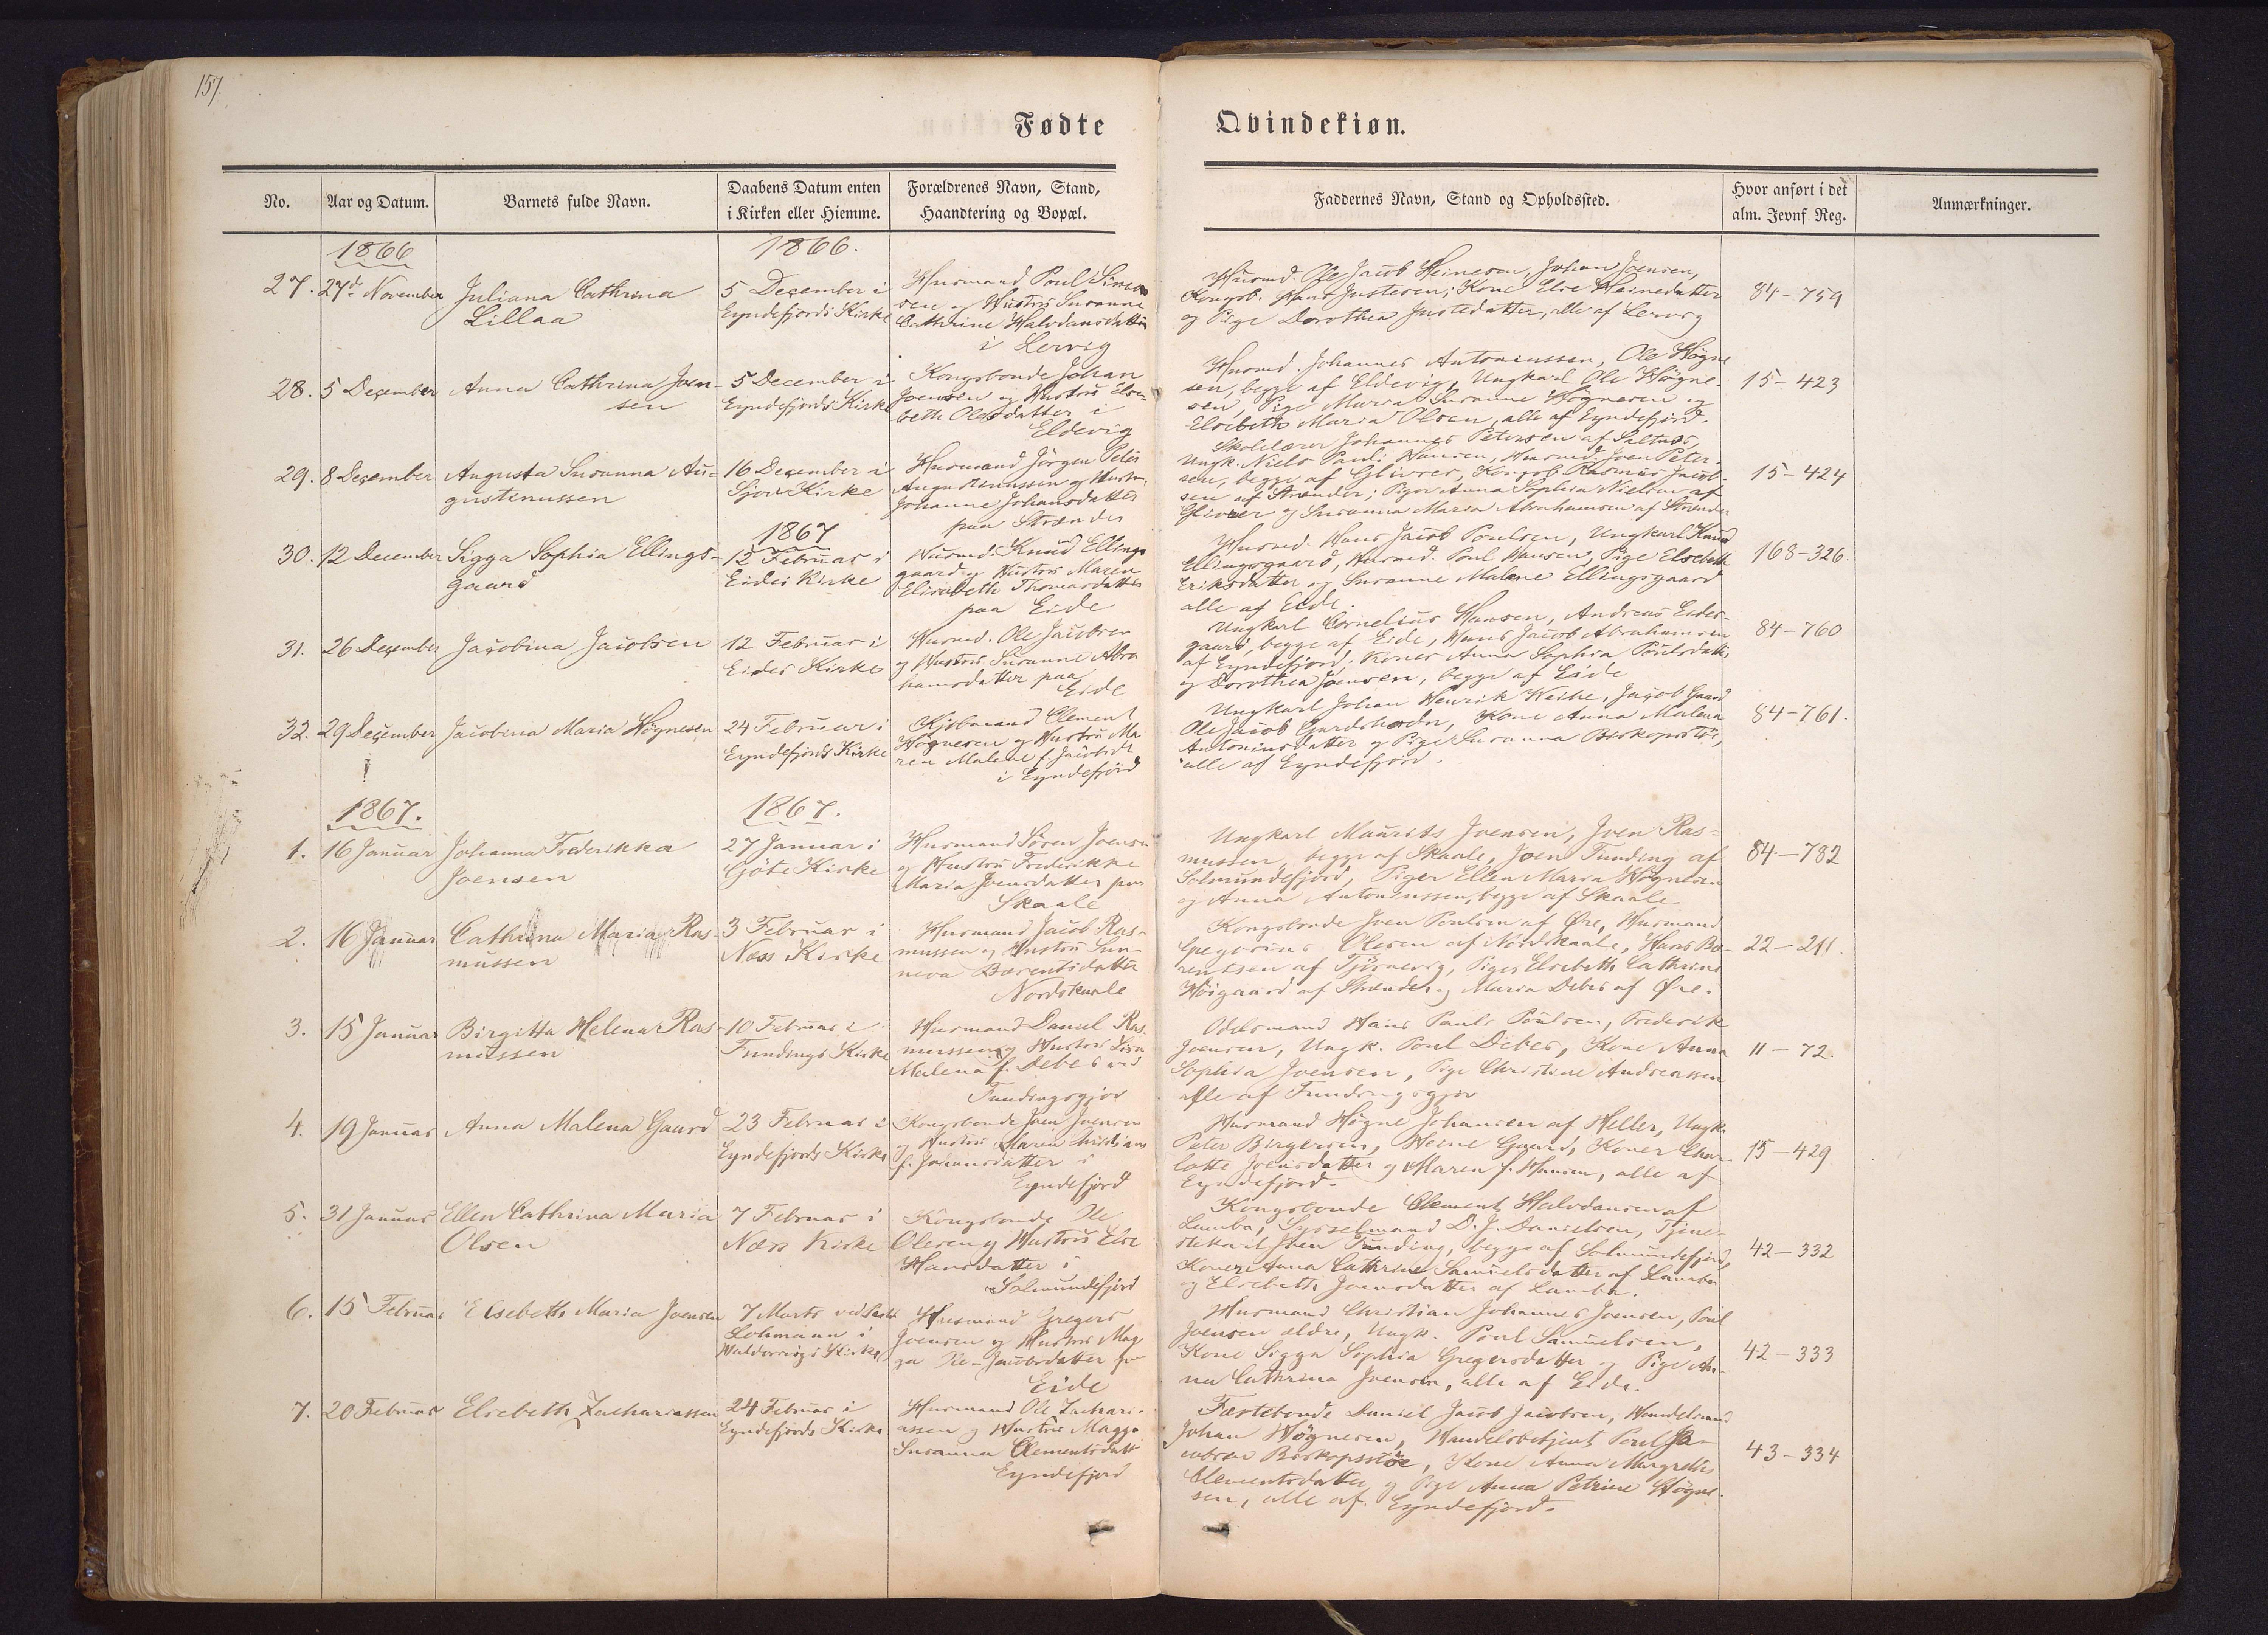 157.
Fødte
Qvindekiøn.
No.
Aar og Datum.
Barnets fulde Navn.
Daabens Datum enten
i Kirken eller Hiemme.
Forældrenes Navn, Stand,
Haandtering og Bopæl.
Faddernes Navn, Stand og Opholdssted.
Hvor anført i det
alm. Jevnf. Reg.
Anmærkninger.
1866
1866.
27.
27d. November
Juliana Cathrina
Lillaa
5 December i
Eyndefjords Kirke
Husmand Poul Simon
sen og Hustru Susanne
Cathrine Halvdansdatter
i Lervig
Husmd. Ole Jacob Heinesen, Johan Joensen,
Kongsb. Hans Justesen; Kone Else Heinedatter
og Pige Dorothea Justedatter, alle af Lervig
84-759
28.
5 December
Anna Cathrina Joen-
sen
5 December i
Eyndefjords Kirke
Kongsbonde Johan
Joensen og Hustru Else-
beth Olesdatter i
Eldevig
Husmd. Johannes Antoniussen, Ole Høgne
sen, begge af Eldevig, Ungkarl Ole Høgne-
sen, Pige Maria Susanne Høgnesen og
Elsebeth Maria Olsen, alle af Eyndefjord.
15-423
29.
8 December
Augusta Susanna Au-
gustinussen
16 December i
Sjov Kirke
Husmand Jörgen Peter
Augustinussen og Hustru
Johanne Johansdatter
paa Strænder
Skolelærer Johannes Petersen af Saltnæs,
Ungk. Niels Pauli Hansen, Husmd. Joen Peter-
sen, begge af Glivrer, Kongsb. Rasmus Jacob-
sen af Strænder; Piger Anna Sophia Nielsen af
Glivrer og Susanna Maria Abrahamsen af Strænder
15-424
1867
30.
12 December
Sigga Sophia Ellings-
gaard
12 Februar i
Eides Kirke
Husmd. Knud Ellings
gaard og Hustru Maren
Elisabeth Thomasdatter
paa Eide
Husmd. Hans Jacob Poulsen, Ungkarl Knud
Ellingsgaard, Husmd. Poul Hansen, Pige Elsebeth
Eriksdatter og Susanne Malene Ellingsgaard
alle af Eide.
168-326.
31.
26 December
Jacobina Jacobsen
12 Februar i
Eides Kirke
Husmd. Ole Jacobsen
og Hustru Susanne Abra
hamsdatter paa
Eide
Ungkarl Cornelius Hansen, Andreas Eides-
gaard, begge af Eide, Hans Jacob Abrahamsen
af Eyndefjord. Koner Anna Sophia Poulsdatter
og Dorothea Joensen, begge af Eide
84-760
32.
29 December
Jacobina Maria Høgnesen
24 Februar i
Eyndefjords Kirke
Kjøbmand Clement
Høgnesen og Hustru Ma
ren Malene f. Jacobsdr
i Eyndefjord
Ungkarl Johan Henrik Weihe, Jacob Gaard
Ole Jacob Gardshorn, Kone Anna Malena
Antoniusdatter og Pige Susanna Biskopsstøe,
alle af Eyndefjord.
84-761.
1867.
1867.
1.
16 Januar
Johanna Frederikka
Joensen
27 Januar i
Göte Kirke
Husmand Sören Joensen
og Hustru Frederikke
Maria Joensdatter paa
Skaale
Ungkarl Maurits Joensen, Joen Ras-
mussen, begge af Skaale, Joen Funding af
Solmundefjord, Piger Ellen Maria Høgnesen
og Anna Antoniussen, begge af Skaale.
84-782
2.
16 Januar
Cathrina Maria Ras-
mussen
3 Februar i
Næs Kirke
Husmand Jacob Ras-
mussen og Hustru Sun-
neva Barentsdatter
Nordskaale
Kongsbonde Joen Poulsen af Øre, Husmand
Gregorius Olesen af Nordskaale, Hans Ba-
rentsen af Tjörnevig, Piger Elsebeth Cathrine
Høigaard af Strænder og Maria Debes af Øre.
22-211.
3.
15 Januar
Birgitta Helena Ras-
mussen
10 Februar i
Fundings Kirke
Husmand Daniel Ras-
mussen og Hustru Lisa
Malena f. Debes ved
Fundingsgjov
Odelsmand Hans Pauli Poulsen, Frederik
Joensen, Ungk. Poul Debes, Kone Anna
Sophia Joensen, Pige Christine Andreassen
alle af Fundingsgjov
11-72.
4.
19 Januar
Anna Malena Gaard
23 Februar i
Eyndefjords Kirke
Kongsbonde Joen Joensen
og Hustru Maren Christiane
f. Johansdatter i
Eyndefjord
Husmand Høgne Johansen af Heller, Ungk.
Peter Birgersen, Heine Gaard, Koner Char-
lotte Joensdatter og Maren f. Hansen, alle af
Eyndefjord.
15-429
5.
31 Januar
Ellen Cathrina Maria
Olsen
7 Februar i
Næs Kirke
Kongsbonde Ole
Olesen og Hustru Else
Hansdatter i
Solmundefjord
Kongsbonde Clement Halvdansen af
Lamba, Sysselmand D. J. Danielsen, Tjene-
stekarl Joen Funding, begge af Solmundefjord,
Koner Anna Cathrine Samuelsdatter af Lamba
og Elsebeth Joensdatter af Lamba.
42-332
6.
15 Februar
Elsebeth Maria Joensen
7 Marts ved Pastor
Lohmann i
Waldervigs Kirke
Husmand Gregers
Joensen og Hustru Mag
ga Ole-Jacobsdatter paa
Eide
Husmand Christian Johannes Joensen, Poul
Joensen ældre, Ungk. Poul Samuelsen,
Kone Sigga Sophia Gregersdatter og Pige An-
na Cathrina Joensen, alle af Eide.
42-333
7.
20 Februar
Elsebeth Zachariassen
24 Februar i
Eyndefjords Kirke
Husmand Ole Zachari-
assen og Hustru Magga
Susanna Clementsdatt
Eyndefjord
Fæstebonde Daniel Jacob Jacobsen, Handelsmand
Johan Høgnesen, Handelsbetjent Poul Ja-
cobsen Biskopsstöe, Kone Anna Margrethe
Clementsdatter og Pige Anna Petrine Høgne-
sen, alle af Eyndefjord.
43-334